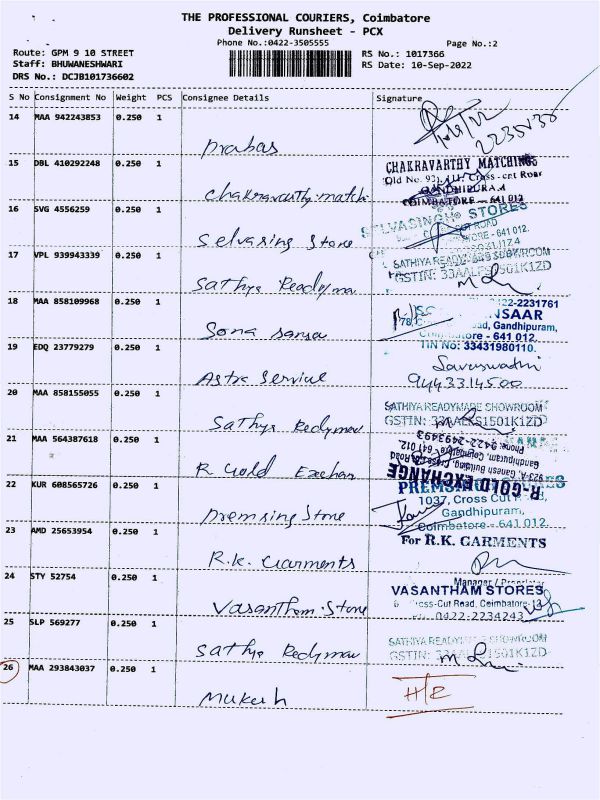 THE PROFESSIONAL COURIERS, Coimbatore
Delivery Runsheet - PCX
Phone No.:0422-3505555
Page No.:2
Route: GPM 9 10 STREET
RS No.: 1017366
Staff: BHUWANESHWARI
RS Date: 10-Sep-2022
DRS No.: DCJB101736602
S No Consignment No Weight PCS Consignee Details Signature
14 MAA 942243853 0.250 1
prabas
15 DBL 410292248 0.250 1
CHAKRAVARTHY MATCHINGS
Old No. Cross-cut Road
GANDHIPURAM
COIMBATORE - 641 012
chakravarthy-match
16 SVG 4556259 0.250 1
SELVASINGH STORES
CUT ROAD
641 012.
Selvasing Store
17 VPL 939943339 0.250 1
SATHIYA READYMADE SHOWROOM
GSTIN: 33AALFS1501K1ZD
Sathya Readyma
18 MAA 858109968 0.250 1
0422-2231761
NSAAR
Gandhipuram,
Coimbatore - 641 012.
TIN No: 33431980110.
Sona sansa
19 EDQ 23779279 0.250 1
Astra Service
9443314500
20 MAA 858155055 0.250 1
SATHIYA READYMADE SHOWROOM
GSTIN: 33AALKS1501K1ZD
Sathya Redymav
21 MAA 564387618 0.250 1
R-GOLD EXCHANGE
923-A, Ganesh Building, Cross Cut Road
Gandhipuram, Coimbatore - 641 012.
Phone: 0422-2493493
R Gold Exchan
22 KUR 608565726 0.250 1
PREMSING STORES
1037, Cross Cut Road,
Gandhipuram,
Coimbatore - 641 012.
premsing Store
23 AMD 25653954 0.250 1
For R.K. GARMENTS
R.K. Garments
Manager / Proprietor
24 STY 52754 0.250 1
VASANTHAM STORES
Cross-Cut Road, Coimbatore-12
0422-2234243
Vasantham.Store
25 SLP 569277 0.250 1
SATHIYA READYMADE SHOWROOM
GSTIN: 33AALKS1501K1ZD
Sathya Redymav
26 MAA 293843037 0.250 1
Mukesh